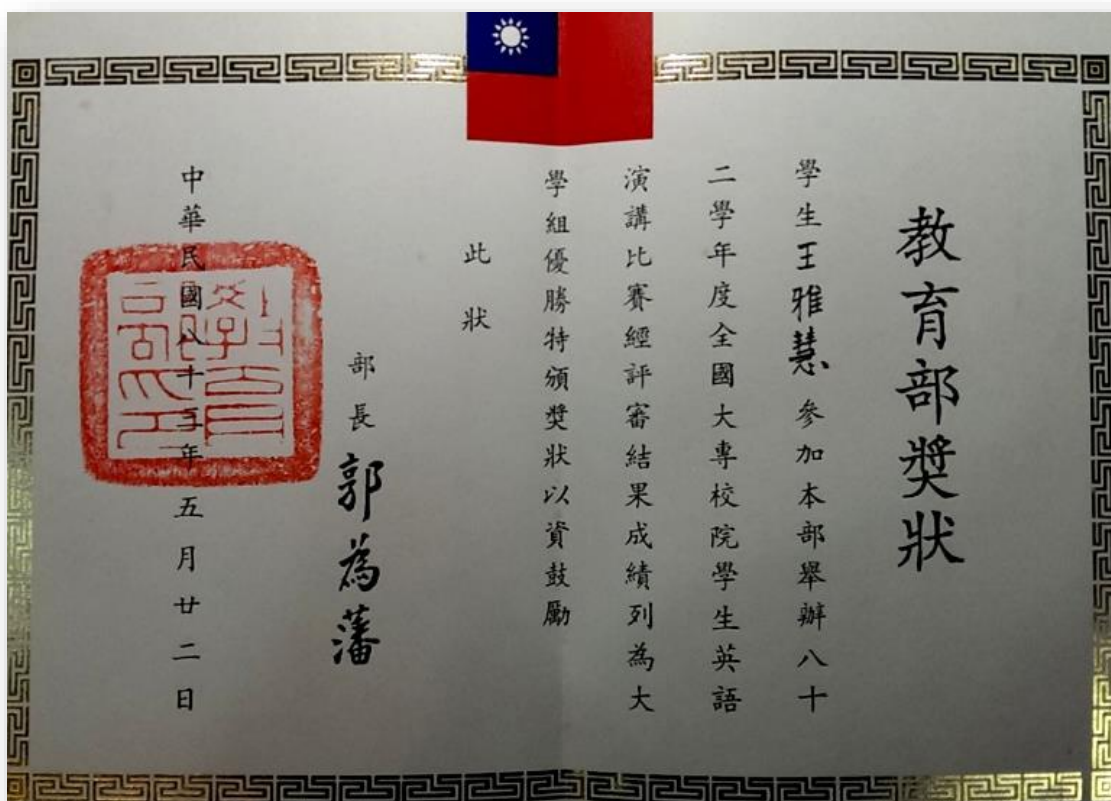 教育部獎狀
學生王雅慧參加本部舉辦八十
二學年度全國大專校院學生英語
演講比賽經評審結果成績列為大
學組優勝特頒獎狀以資鼓勵
此狀
部長郭為藩
中華民國八十三年五月廿二日